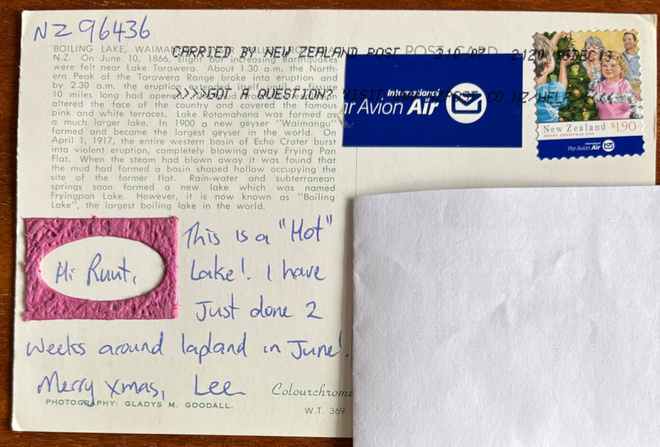 NZ96436
BOILING LAKE, WAIMAN
N.Z. On June 10, 1866, slight but increasing earthquakes
were felt near Lake Tarawera. About 1.30 a.m. the North-
ern Peak of the Tarawera Range broke into eruption and
by 2.30 a.m. the
10 miles long had
altered the face of the country and covered the famous
pink and white terraces. Lake Rotomahana was formed as
a much larger lake. In 1900 a new geyser "Waimangu"
formed and became the largest geyser in the world. On
April 1, 1917, the entire western basin of Echo Crater burst
into violent eruption, completely blowing away Frying Pan
Flat. When the steam had blown away it was found that
the mud had formed a basin shaped hollow occupying the
site of the former flat. Rain-water and subterranean
springs soon formed a new lake which was named
Fryingpan Lake. However, it is now known as "Boiling
Lake", the largest boiling lake in the world.
POST CARD
CARRIED BY NEW ZEALAND POST
>>>>GOT A QUESTION? VISIT POST.CO.NZ/HELP
International
Par Avion Air
New Zealand $1.90
MERRY CHRISTMAS
International
Par Avion Air
Hi Ruut,
This is a "Hot"
Lake! I have
Just done 2
weeks around lapland in June!
Merry xmas, Lee
Colourchrome
PHOTOGRAPHY: GLADYS M. GOODALL.
W.T. 369